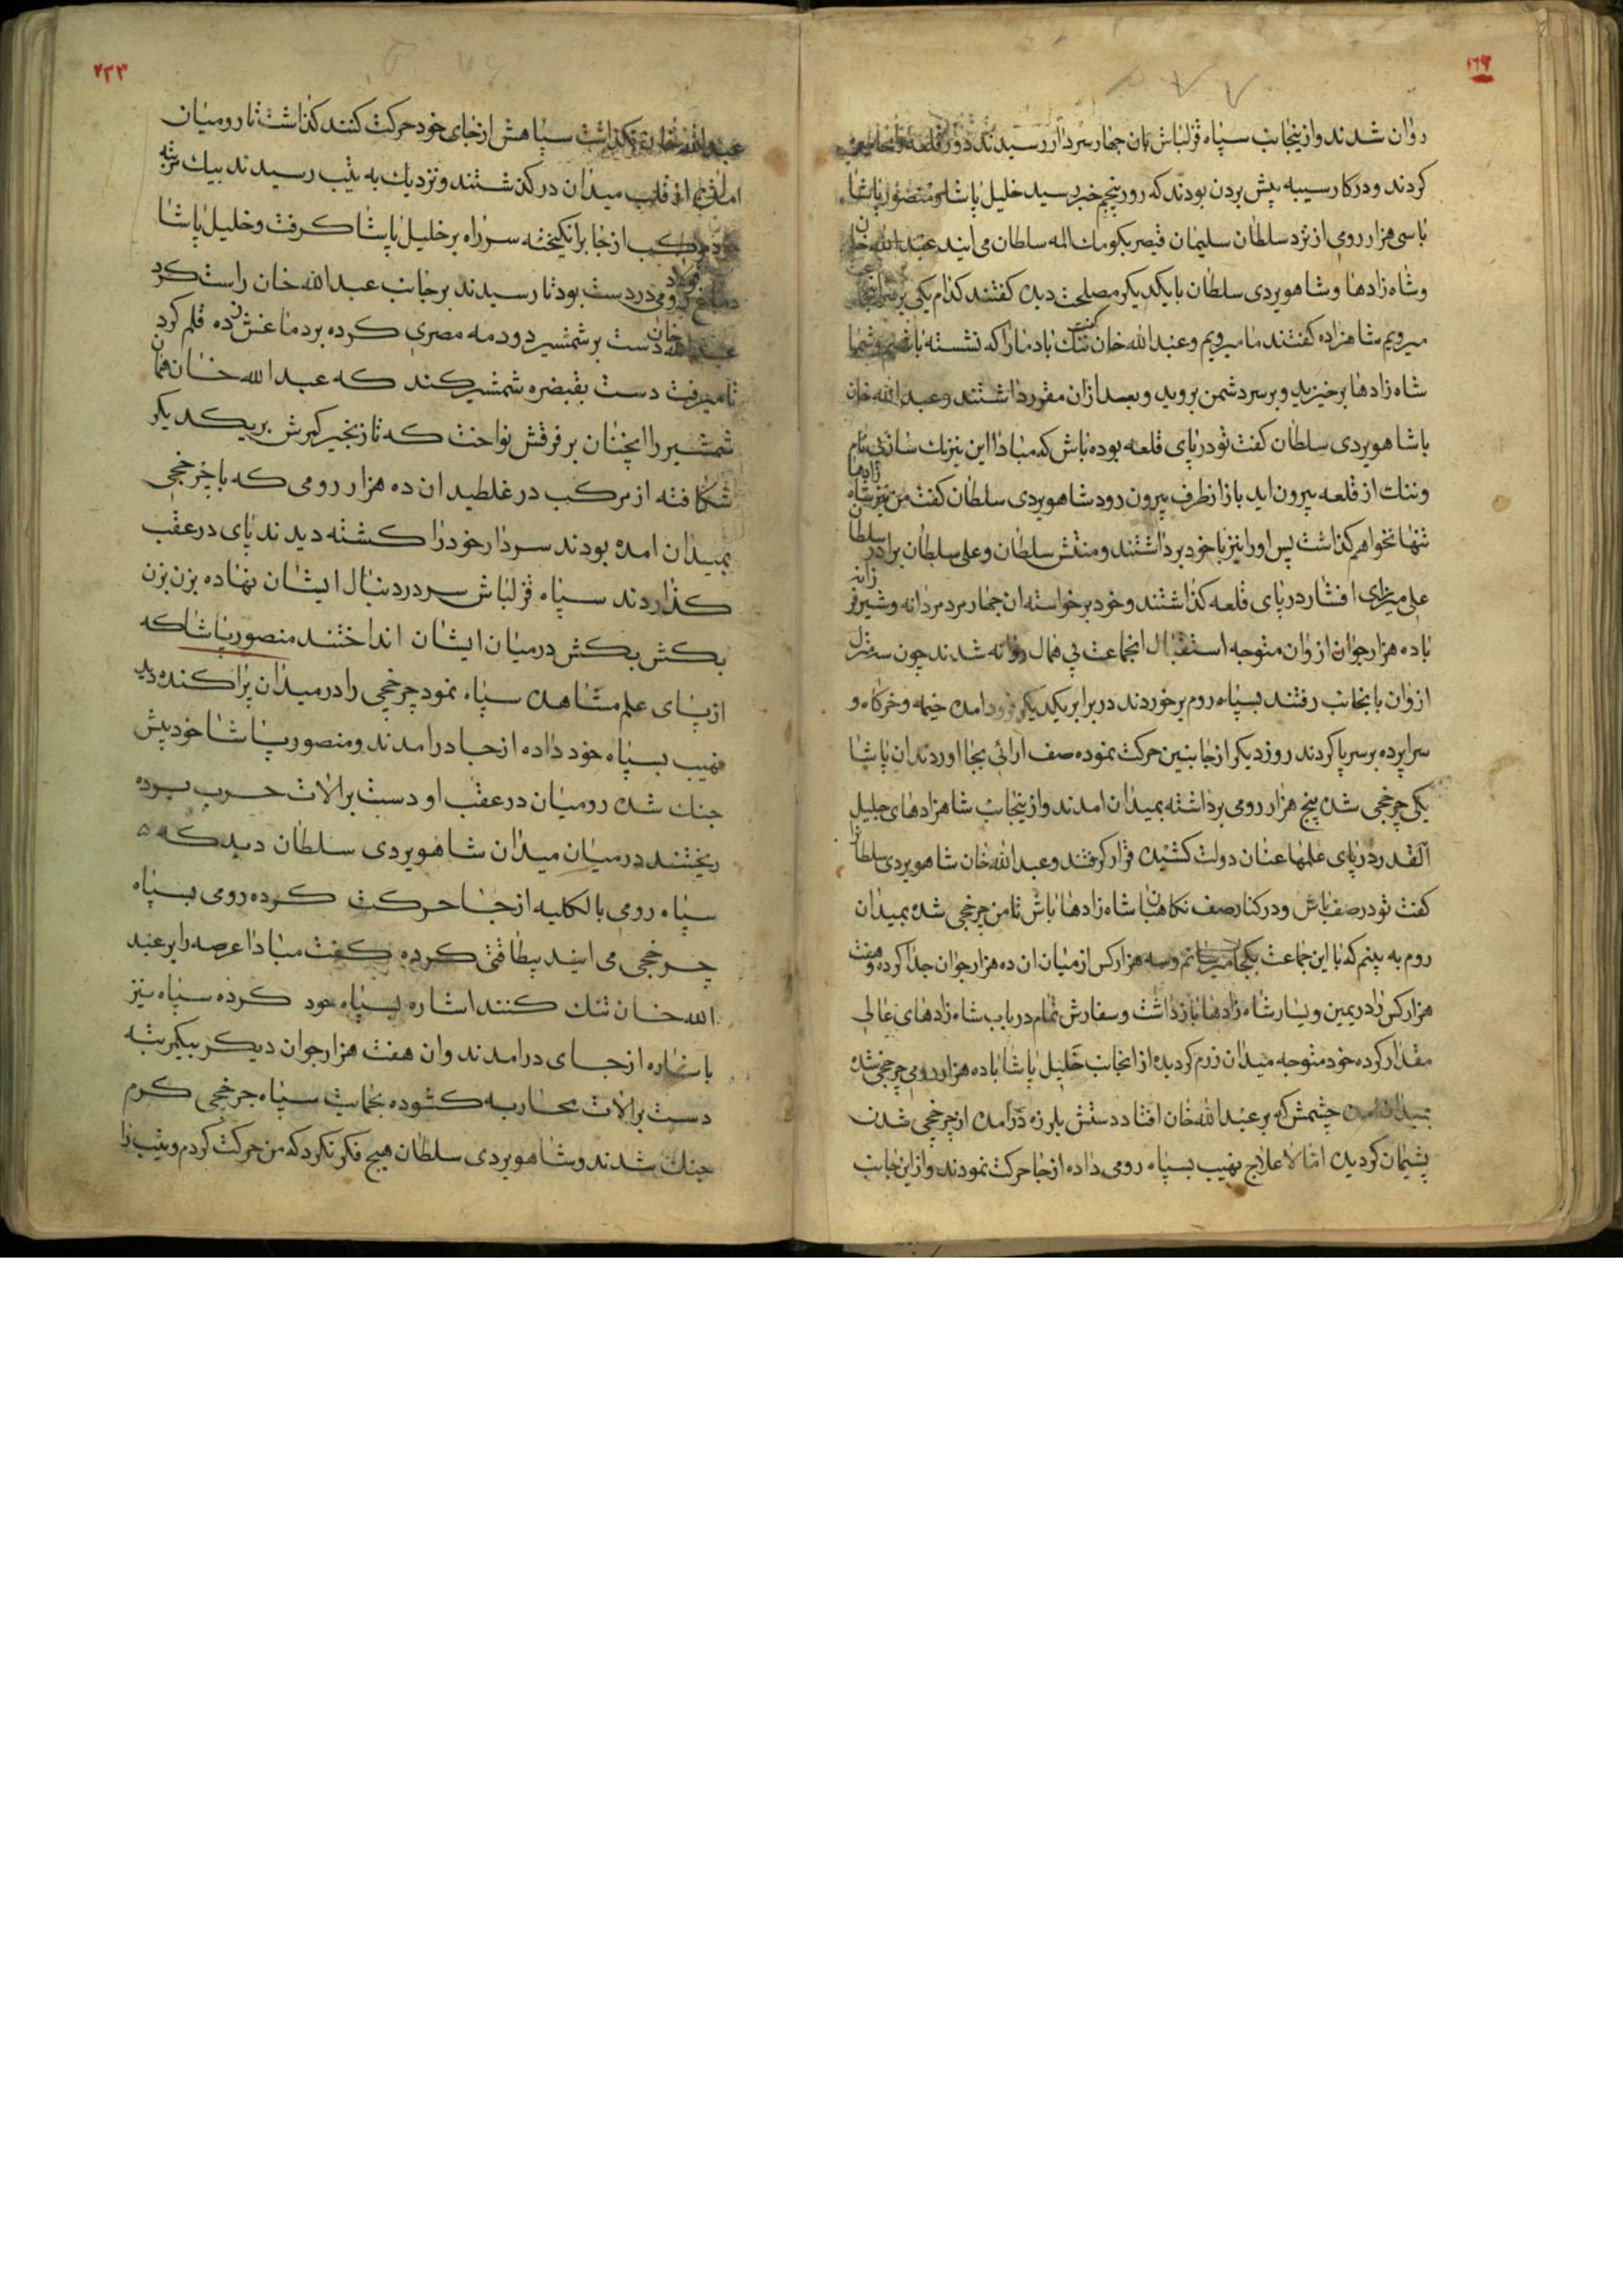 ۱۶۶
روان شدند و ازینجانب سپاه قزلباش بان چهار سردار رسیدند دور قلعه
کردند و در کار سیبه پیش بردن بودند که روز پنجم خبر رسید خلیل پاشا و منصور پاشا
با سی هزار رومی از نزد سلطان سلیمان قیصر بکومک المه سلطان می ایند عبدالله خان
و شاه زادها و شاهویردی سلطان بایکدیکر مصلحت دیده کفتند کدام یکی
میرویم شاهزاده کفتند ما میرویم و عبدالله خان کفت ننک باد ما را که نشسته باشیم و شما
شاه زادها برخیزید و برسر دشمن بروید و بعد ازان مقرر داشتند و عبدالله خان
باشاهویردی سلطان کفت تو در پای قلعه بوده باش که مبادا این نیزنک ساز بی نام
و ننک از قلعه بیرون اید باز از طرف بیرون رود شاهویردی سلطان کفت من نیز شاه زادها
تنها نخواهم کذاشت پس اورا نیز با خود برداشتند و منتش سلطان و علی سلطان برادر
علی میرزای افشار در پای قلعه کذاشتند و خود برخواسته ان چهار مرد مردانه و شیر فرزانه
باده هزار جوان از وان متوجه استقبال انجماعت بی همال روانه شدند چون سه منزل
از وان بانجانب رفتند بسپاه روم برخوردند در برابر یکدیکر فرود امده خیمه و خرکاه و
سراپرده برسر پا کردند روز دیکر از جانبین حرکت نموده صف ارائی بجا اوردند ان پاشا
یکی چرخجی شده پنج هزار رومی برداشته بمیدان امدند و از ینجانب شاهزادهای جلیل
القدر در پای علمها عنان دولت کشیده قرار کرفتند و عبدالله خان شاهویردی سلطانرا
کفت تو در صف باش و در کنار صف نکاهبان شاه زادها باش تا من چرخجی شده بمیدان
روم به بینم که با این جماعت بکجا میرسانم و سه هزار کس از میان ان ده هزار جوان جدا کرده و هفت
هزار کس را در یمین و یسار شاه زادها بازداشت و سفارش تمام در باب شاه زادهای عالی
مقدار کرده خود متوجه میدان رزم کردیده از انجانب خلیل پاشا باده هزار رومی چرخجی شده
بمیدان امده چشمش که بر عبدالله خان افتاد دستش بلرزه درامده از چرخجی شدن
پشیمان کردیده اما لاعلاج نهیب بسپاه رومی داده از جا حرکت نمودند و از این جانب
۷۲۳
عبدالله خان نکذاشت سپاهش از جای خود حرکت کنند کذاشت تا رومیان
از قلب میدان درکذشتند و نزدیک به تیب رسیدند بیک مرتبه
مرکب از جا برانکیخته سر راه بر خلیل پاشا کرفت و خلیل پاشا
رومی در دست بود تا رسیدند بر جانب عبدالله خان راست کرد
عبدالله خان دست بر شمشیر دودمه مصری کرده بر دماغش زده قلم کرد
تا میرفت دست بقبضره شمشیر کند که عبدالله خان همان
شمشیر را انچنان بر فرقش نواخت که تا زنجیر کمرش بریکدیکر
شکافته از مرکب در غلطید ان ده هزار رومی که با چرخجی
بمیدان امده بودند سردار خود را کشته دیدند پای در عقب
کذاردند سپاه قزلباش سر در دنبال ایشان نهاده بزن بزن
بکش بکش در میان ایشان انداختند منصور پاشا که
از پای علم مشاهده سپاه نمود چرخجی را در میدان پراکنده دید
نهیب بسپاه خود داده از جا درامدند و منصور پاشا خود پیش
جنک شده رومیان در عقب او دست بر الات حرب برده
ریختند در میان میدان شاهویردی سلطان دید که
سپاه رومی بالکلیه از جا حرکت کرده رومی بسپاه
چرخجی می ایند بیطاقتی کرده کفت مبادا عرصه را بر عبد
الله خان تنک کنند اشاره بسپاه خود کرده سپاه نیز
باشاره از جای درامدند وان هفت هزار جوان دیکر بیکمرتبه
دست بر الات محاربه کشوده بحمایت سپاه چرخجی کرم
جنک شدند و شاهویردی سلطان هیچ فکر نکرد که من حرکت کردم و تیب را